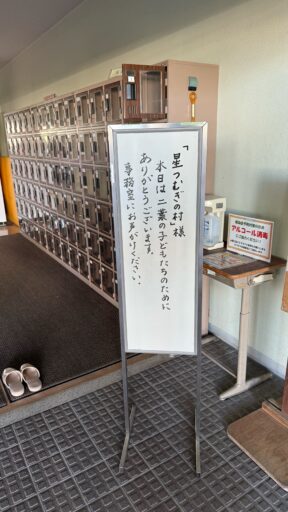 「星つむぎの村」様
本日は二葉の子どもたちのために
ありがとうございます。
事務室にお声がけください。
アルコール消毒